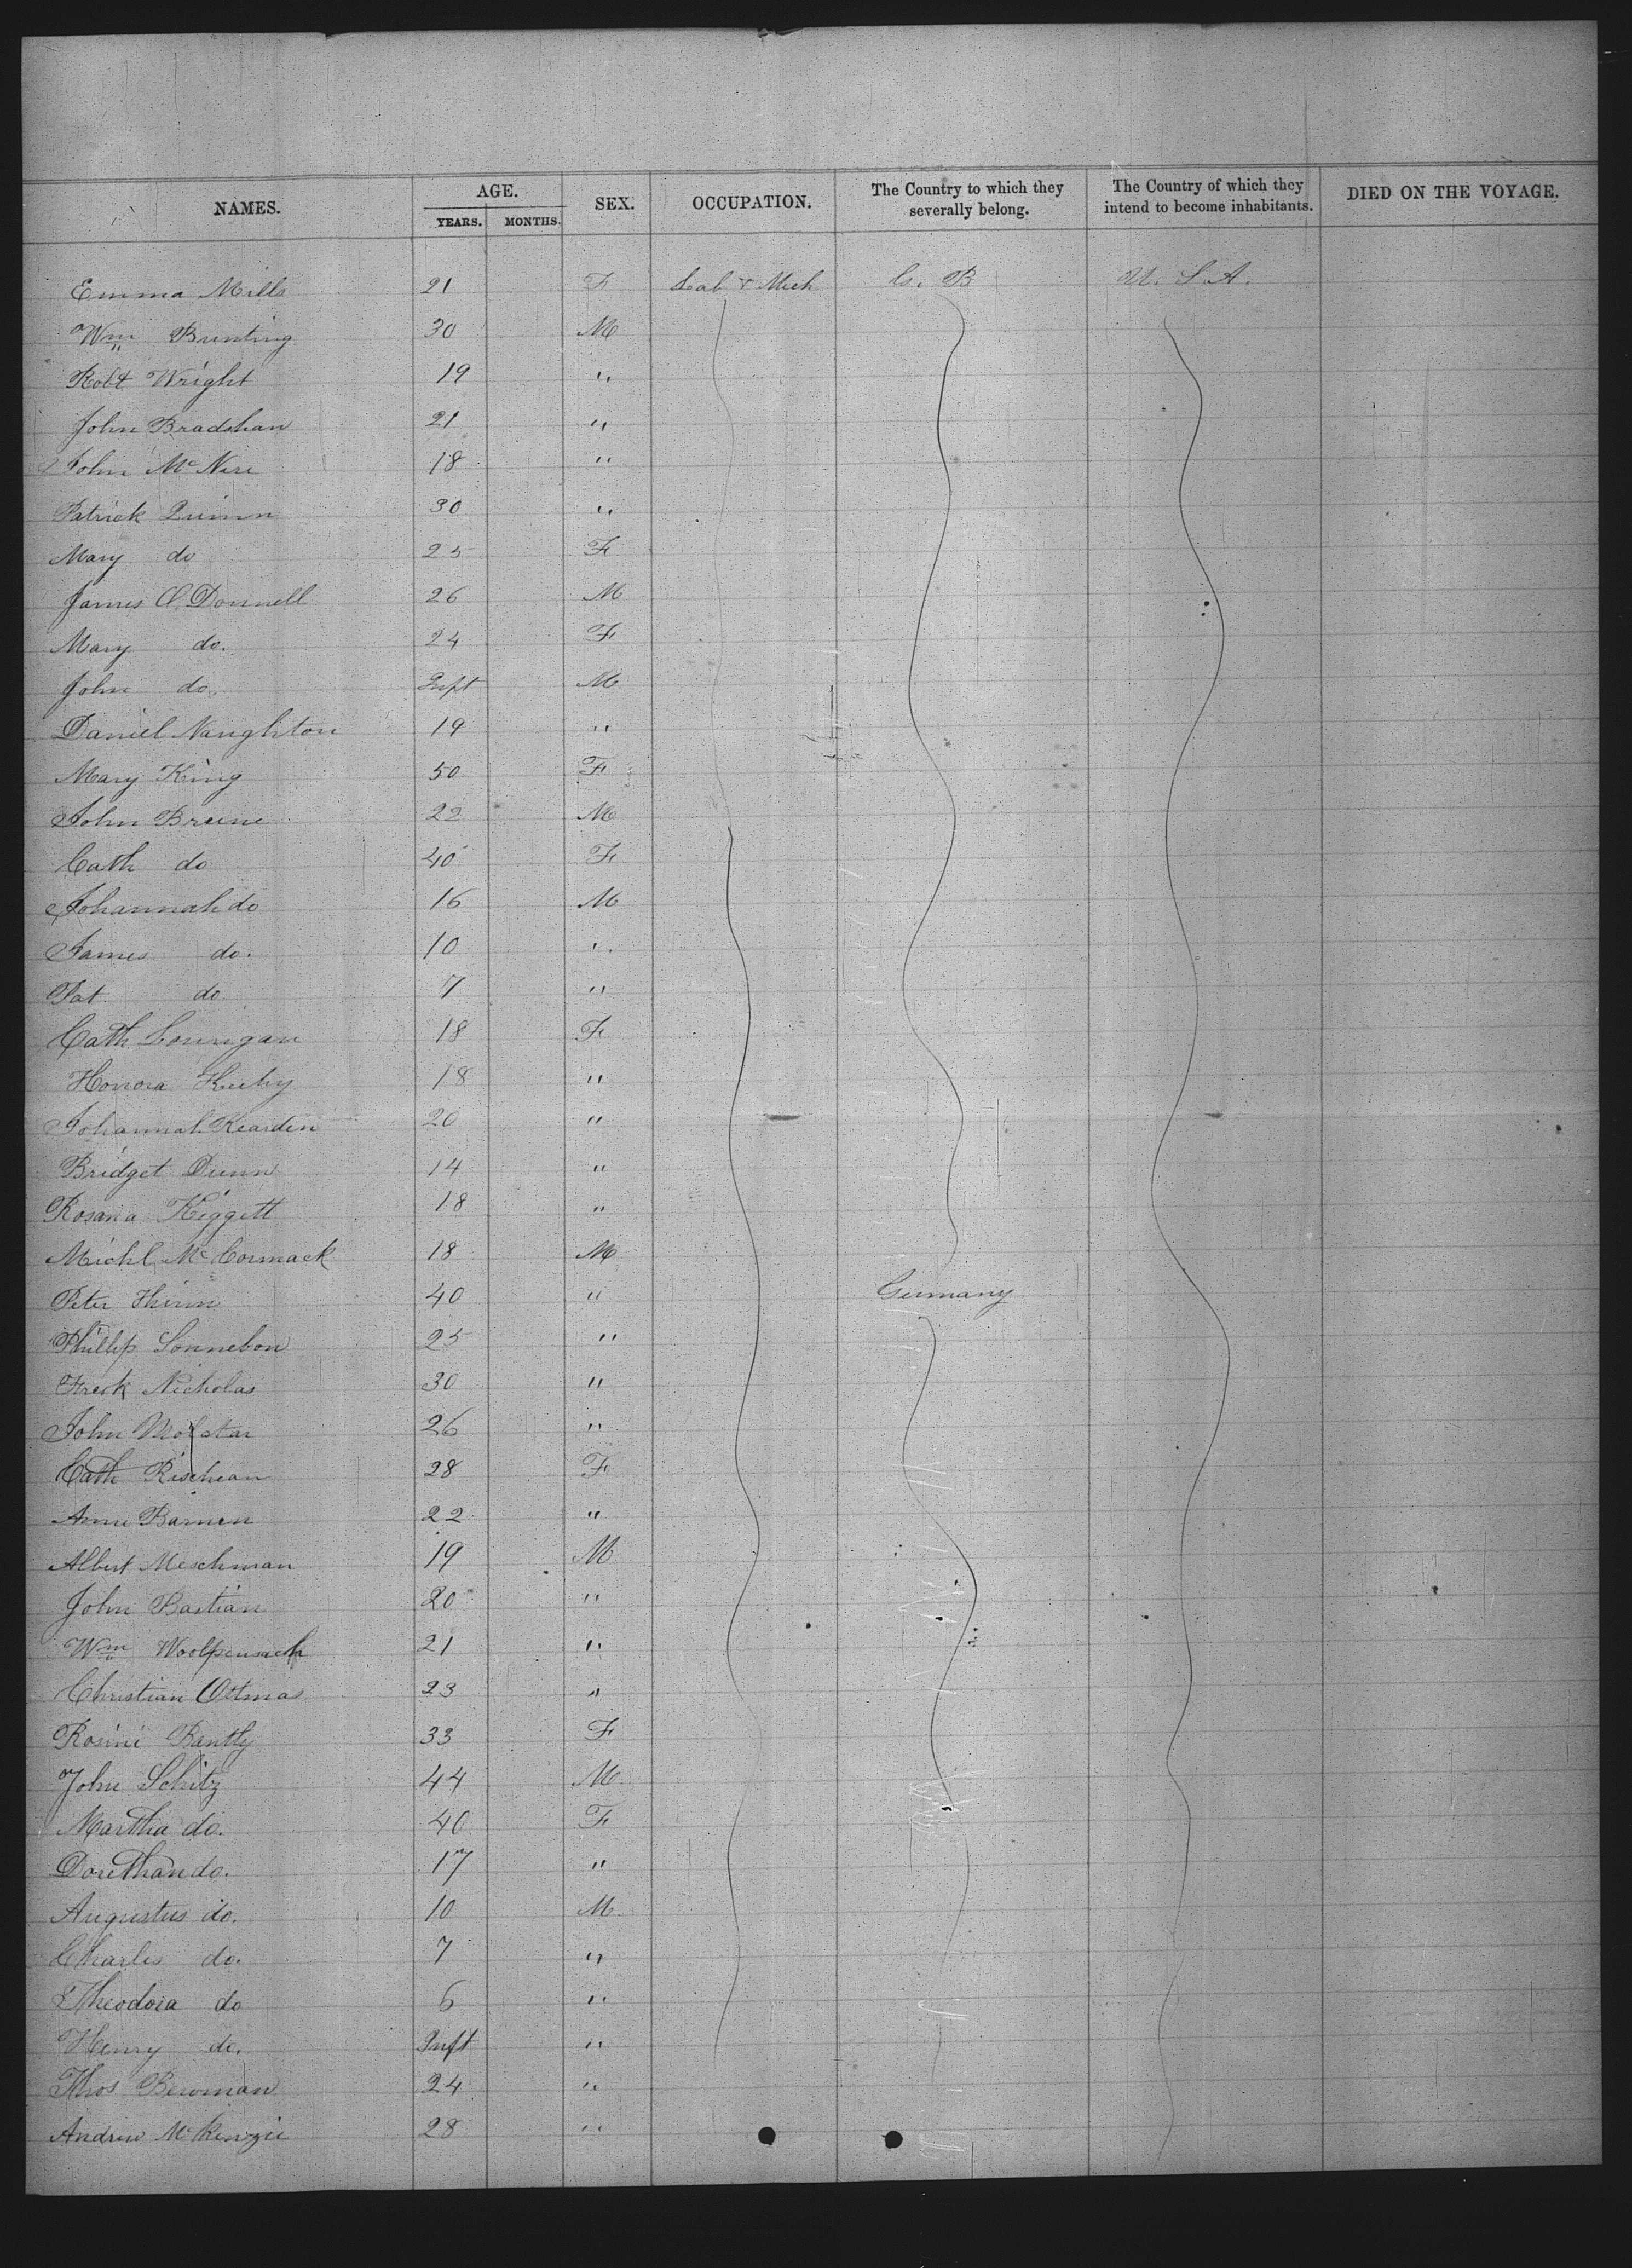 NAMES. AGE. YEARS. MONTHS. SEX. OCCUPATION. The Country to which they severally belong. The Country of which they intend to become inhabitants. DIED ON THE VOYAGE.
Emma Mills 21 F Lab & Mech G. B U. S. A.
Wm Bunting 30 M
Robt Wright 19 "
John Bradshaw 21 "
John Mc 18 "
Patrick Quinn 30 "
Mary do 25 F
James O'Donnell 26 M
Mary do. 24 F
John do. Inft M
Daniel Naughton 19 "
Mary King 50 F
John Breene 22 M
Cath do 40 F
Johannah do 16 M
James do. 10 "
Pat do 7 "
Cath 18 F
Honora 18 "
Johannah Rearden 20 "
Bridget Dunn 14 "
Rosana Keggett 18 "
Michl McCormack 18 M
Peter 40 " Germany
Phillip Sonnebon 25 "
Fredk Nicholas 30 "
John 26 "
Cath 28 F
Anne Barnen 22 "
Albert Meschman 19 M
John Bastian 20 "
Wm Woolpensach 21 "
Christian Ottmas 23 "
Rosini Bantly 33 F
John Schitz 44 M
Martha do. 40 F
Dorethan do. 17 "
Augustus do. 10 M
Charles do. 7 "
Theodora do 6 "
Henry do. Inft "
Thos Bewman 24 "
Andrew McKenzie 28 "